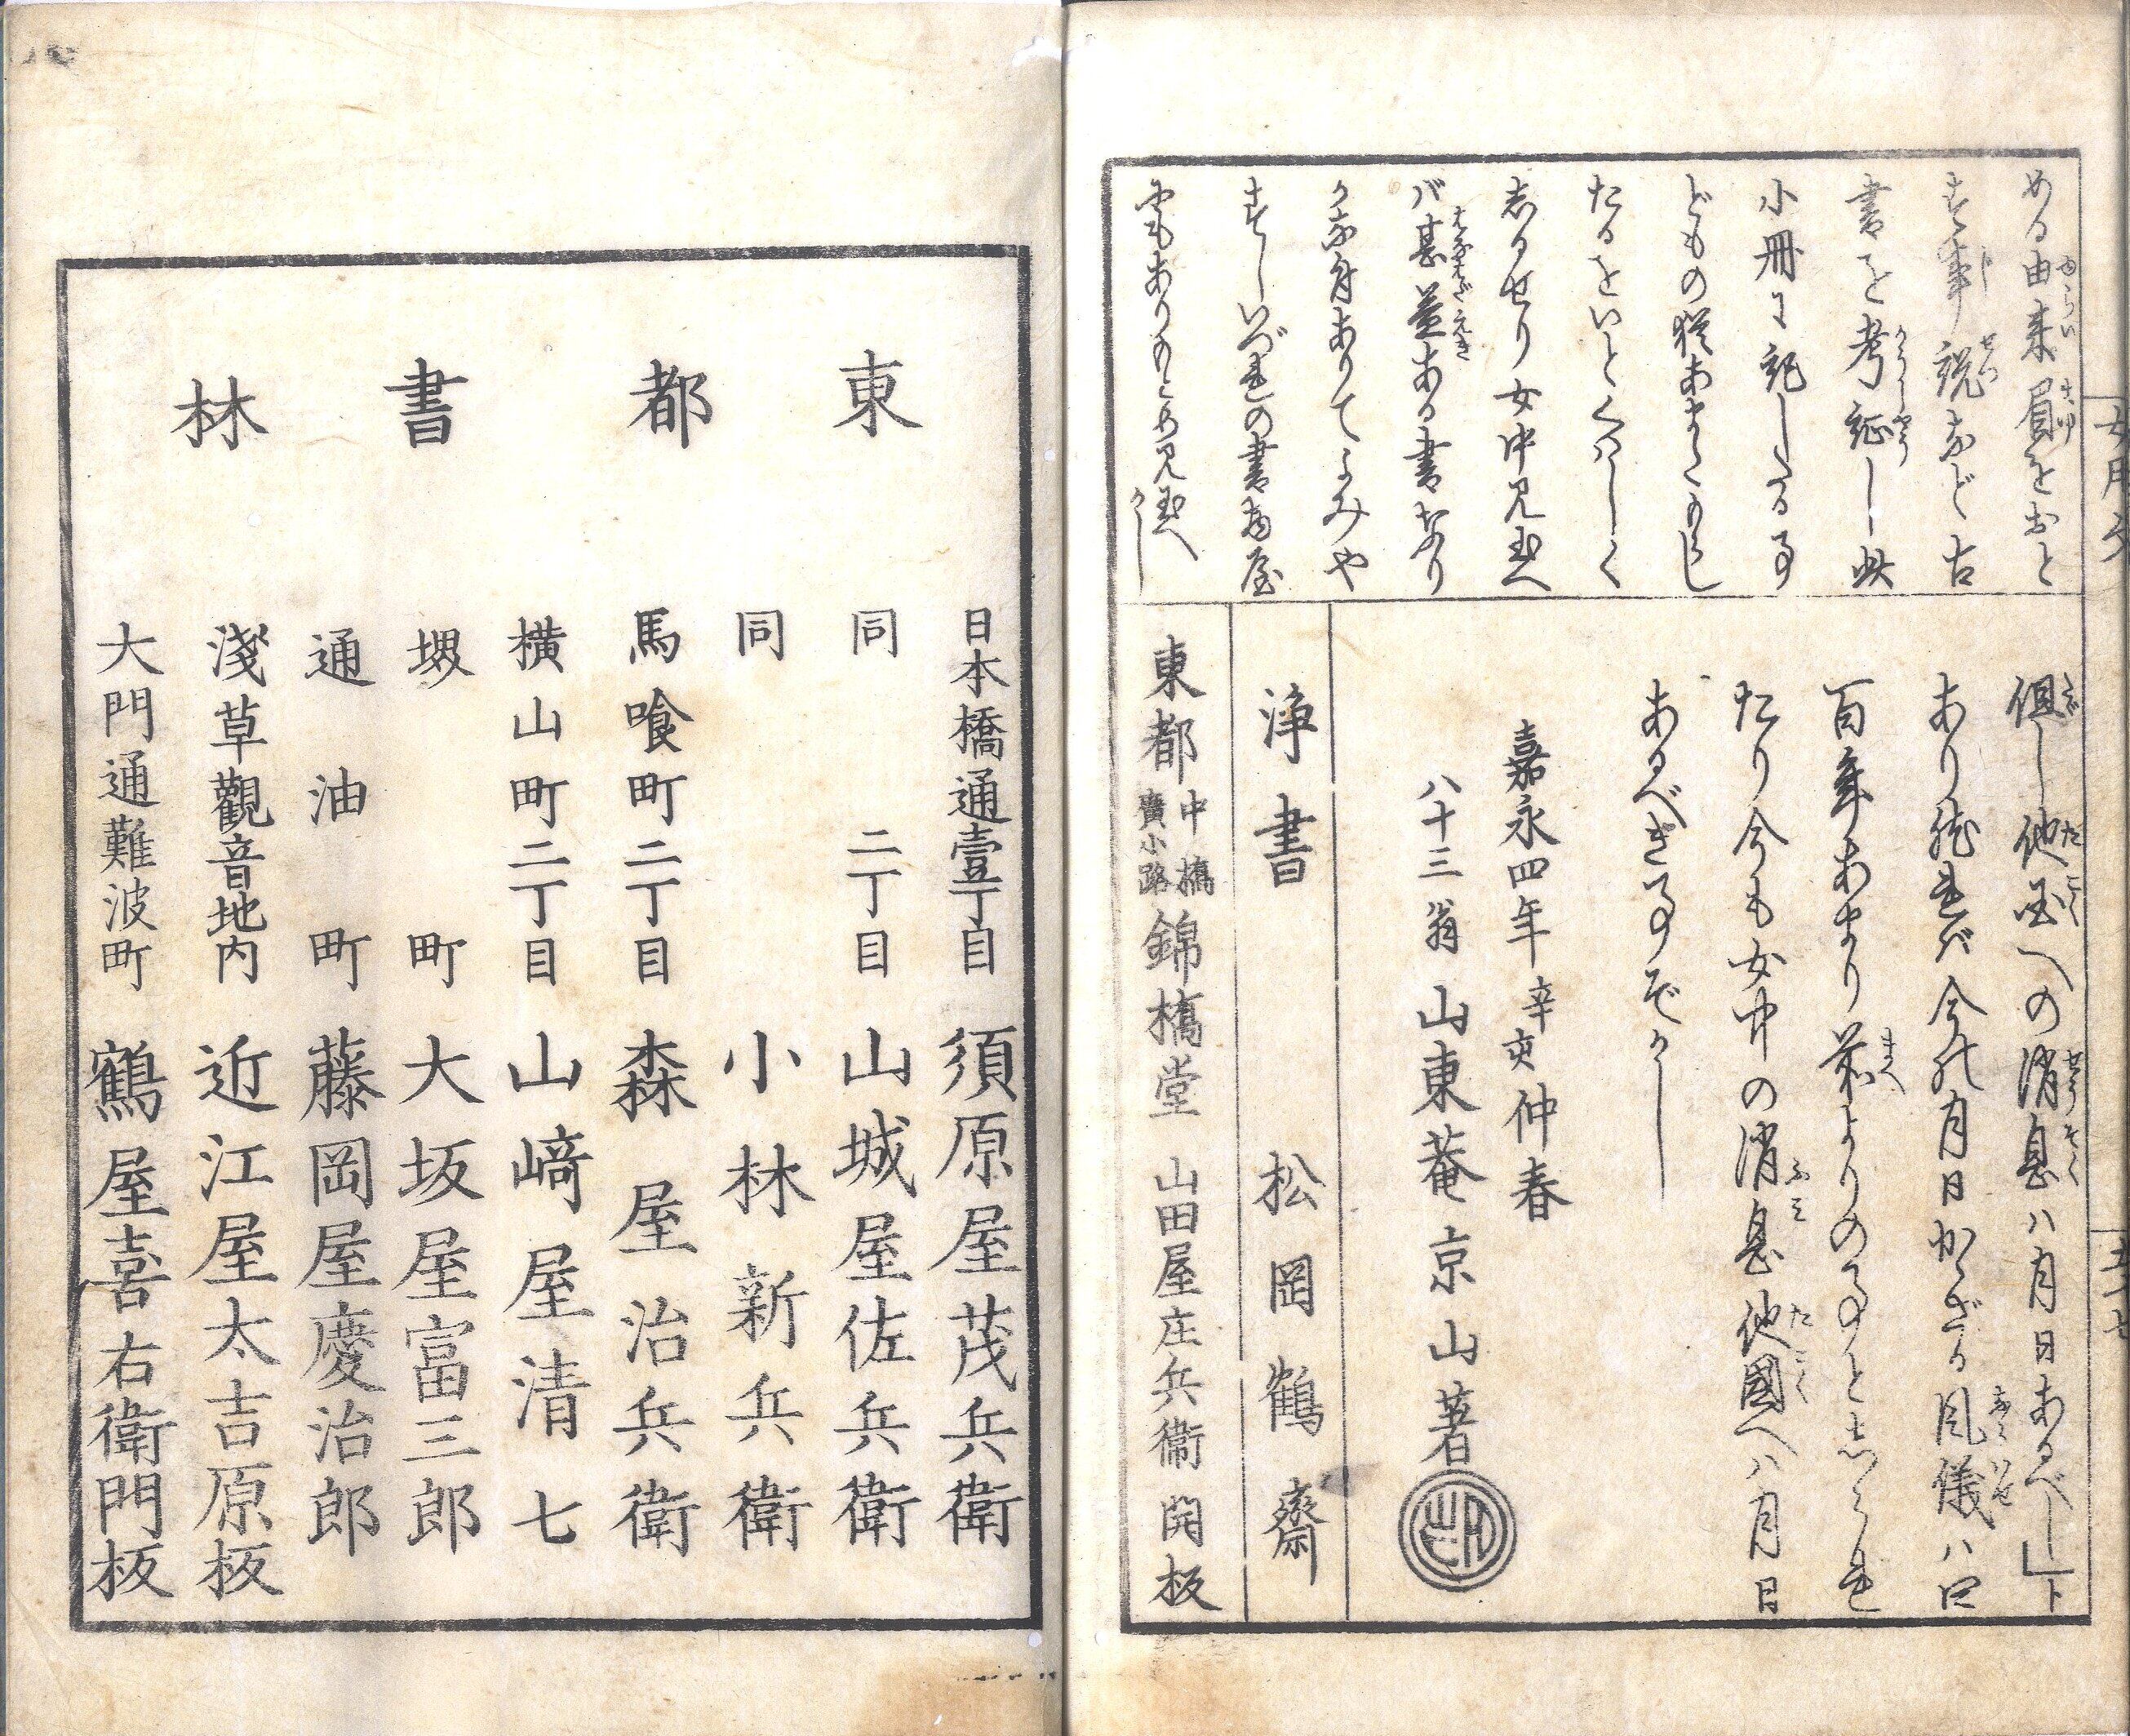 める由来眉をおと
す事の説など古
書を考証し此
小冊に記したる事
どもの猶あまたもらし
たるをいとくはしく
しるせり女中見給へ
ば甚益ある書なり
すべしいづれの書物屋
にもありもとめ見給へかし
但し他国への消息ハ月日あるべし」ト
あり然れバ今の月日かゝざる風儀ハ凡
百年あまり前よりの事としられ
たり今も女中の消息他國へハ月日
あるべき事ぞかし
嘉永四年辛亥仲春
八十三翁 山東菴京山著
浄書 松岡鶴齋
東都 中橋廣小路 錦橋堂 山田屋庄兵衞開板
東都書林
日本橋通壹丁目 須原屋茂兵衛
同 二丁目 山城屋佐兵衛
同 小林新兵衛
馬喰町二丁目 森屋治兵衛
横山町二丁目 山﨑屋清七
堺町 大坂屋富三郎
通油町 藤岡屋慶治郎
淺草觀音地内 近江屋太吉原板
大門通難波町 鶴屋喜右衛門板